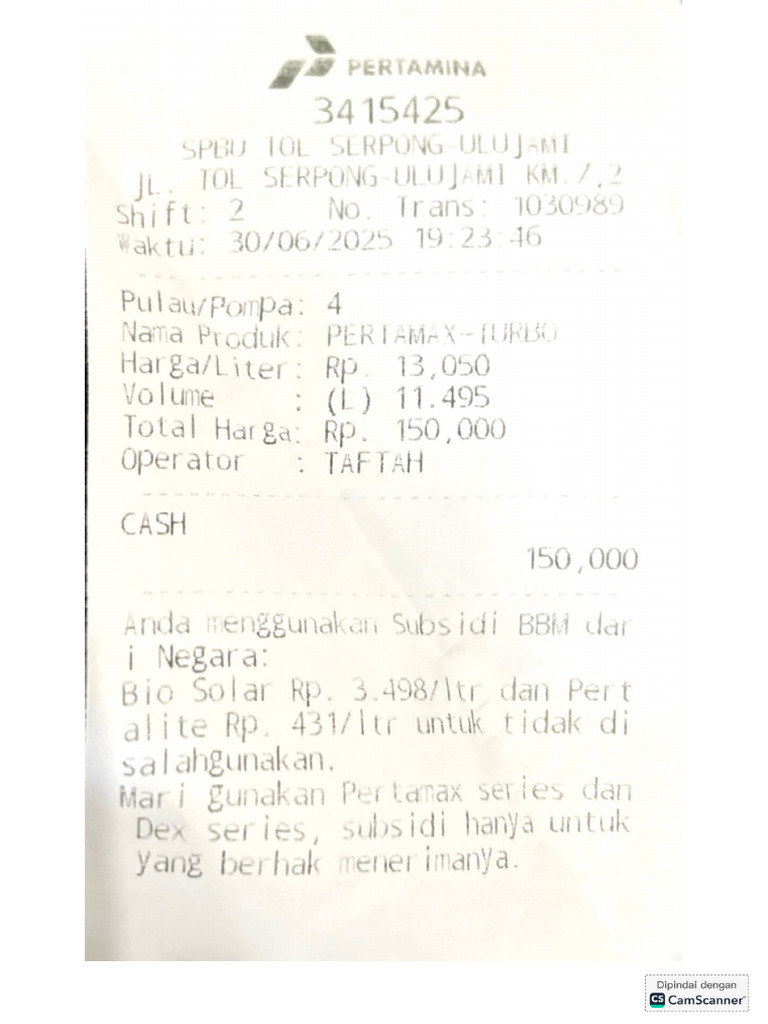 PERTAMINA
3415425
SPBU TOL SERPONG-ULUJAMI
JL. TOL SERPONG-ULUJAMI KM.7,2
Shift: 2 No. Trans: 1030989
Waktu: 30/06/2025 19:23:46
Pulau/Pompa: 4
Nama Produk: PERTAMAX-TURBO
Harga/Liter: Rp. 13,050
Volume : (L) 11.495
Total Harga: Rp. 150,000
Operator : TAFTAH
CASH
150,000
Anda menggunakan Subsidi BBM dar
i Negara:
Bio Solar Rp. 3.498/ltr dan Pert
alite Rp. 431/ltr untuk tidak di
salahgunakan.
Mari gunakan Pertamax series dan
Dex series, subsidi hanya untuk
yang berhak menerimanya.
Dipindai dengan
CS CamScanner